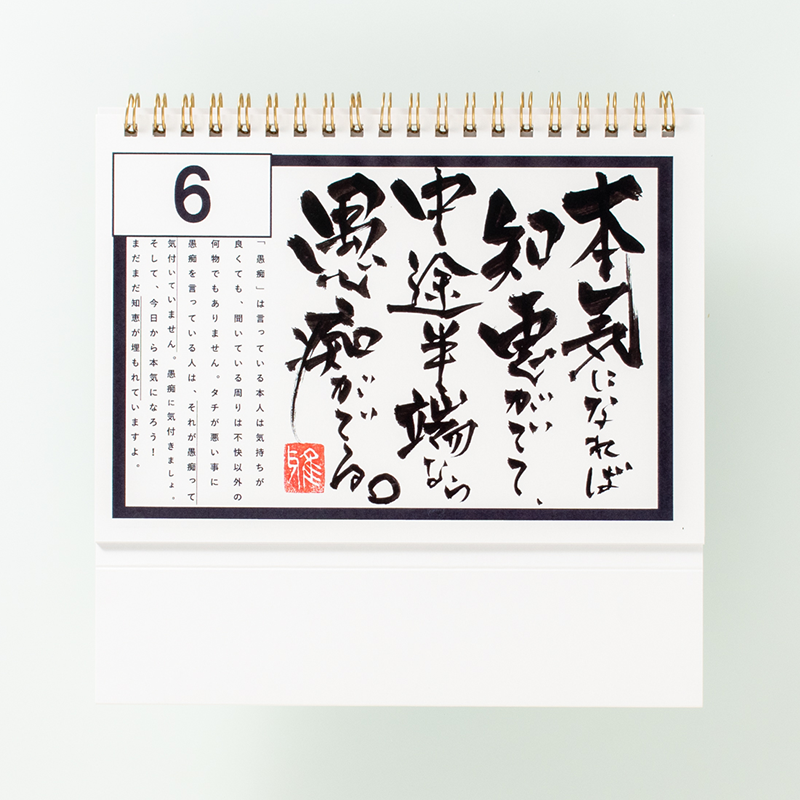 6
本気になれば
知恵がでて、
中途半端なら
愚痴がでる。
「愚痴」は言っている本人は気持ちが
良くても、聞いている周りは不快以外の
何物でもありません。タチが悪い事に
愚痴を言っている人は、それが愚痴って
気付いていません。愚痴に気付きましょ。
そして、今日から本気になろう！
まだまだ知恵が埋もれていますよ。